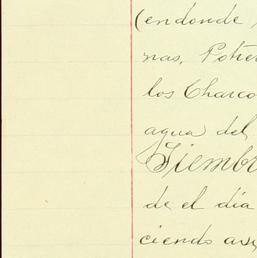 (endonde
nas, Potre
los Charco
agua del
Siembr
de el día
ciendo ase